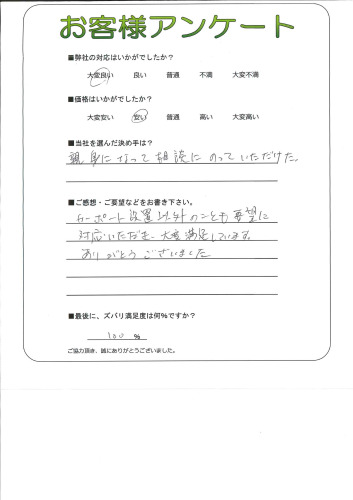 お客様アンケート
■弊社の対応はいかがでしたか？
大変良い 良い 普通 不満 大変不満
■価格はいかがでしたか？
大変安い 安い 普通 高い 大変高い
■当社を選んだ決め手は？
親身になって相談にのっていただけた。
■ご感想・ご要望などをお書き下さい。
カーポート設置以外のことも要望に
対応いただき、大変満足しています。
ありがとうございました
■最後に、ズバリ満足度は何%ですか？
100 %
ご協力頂き、誠にありがとうございました。